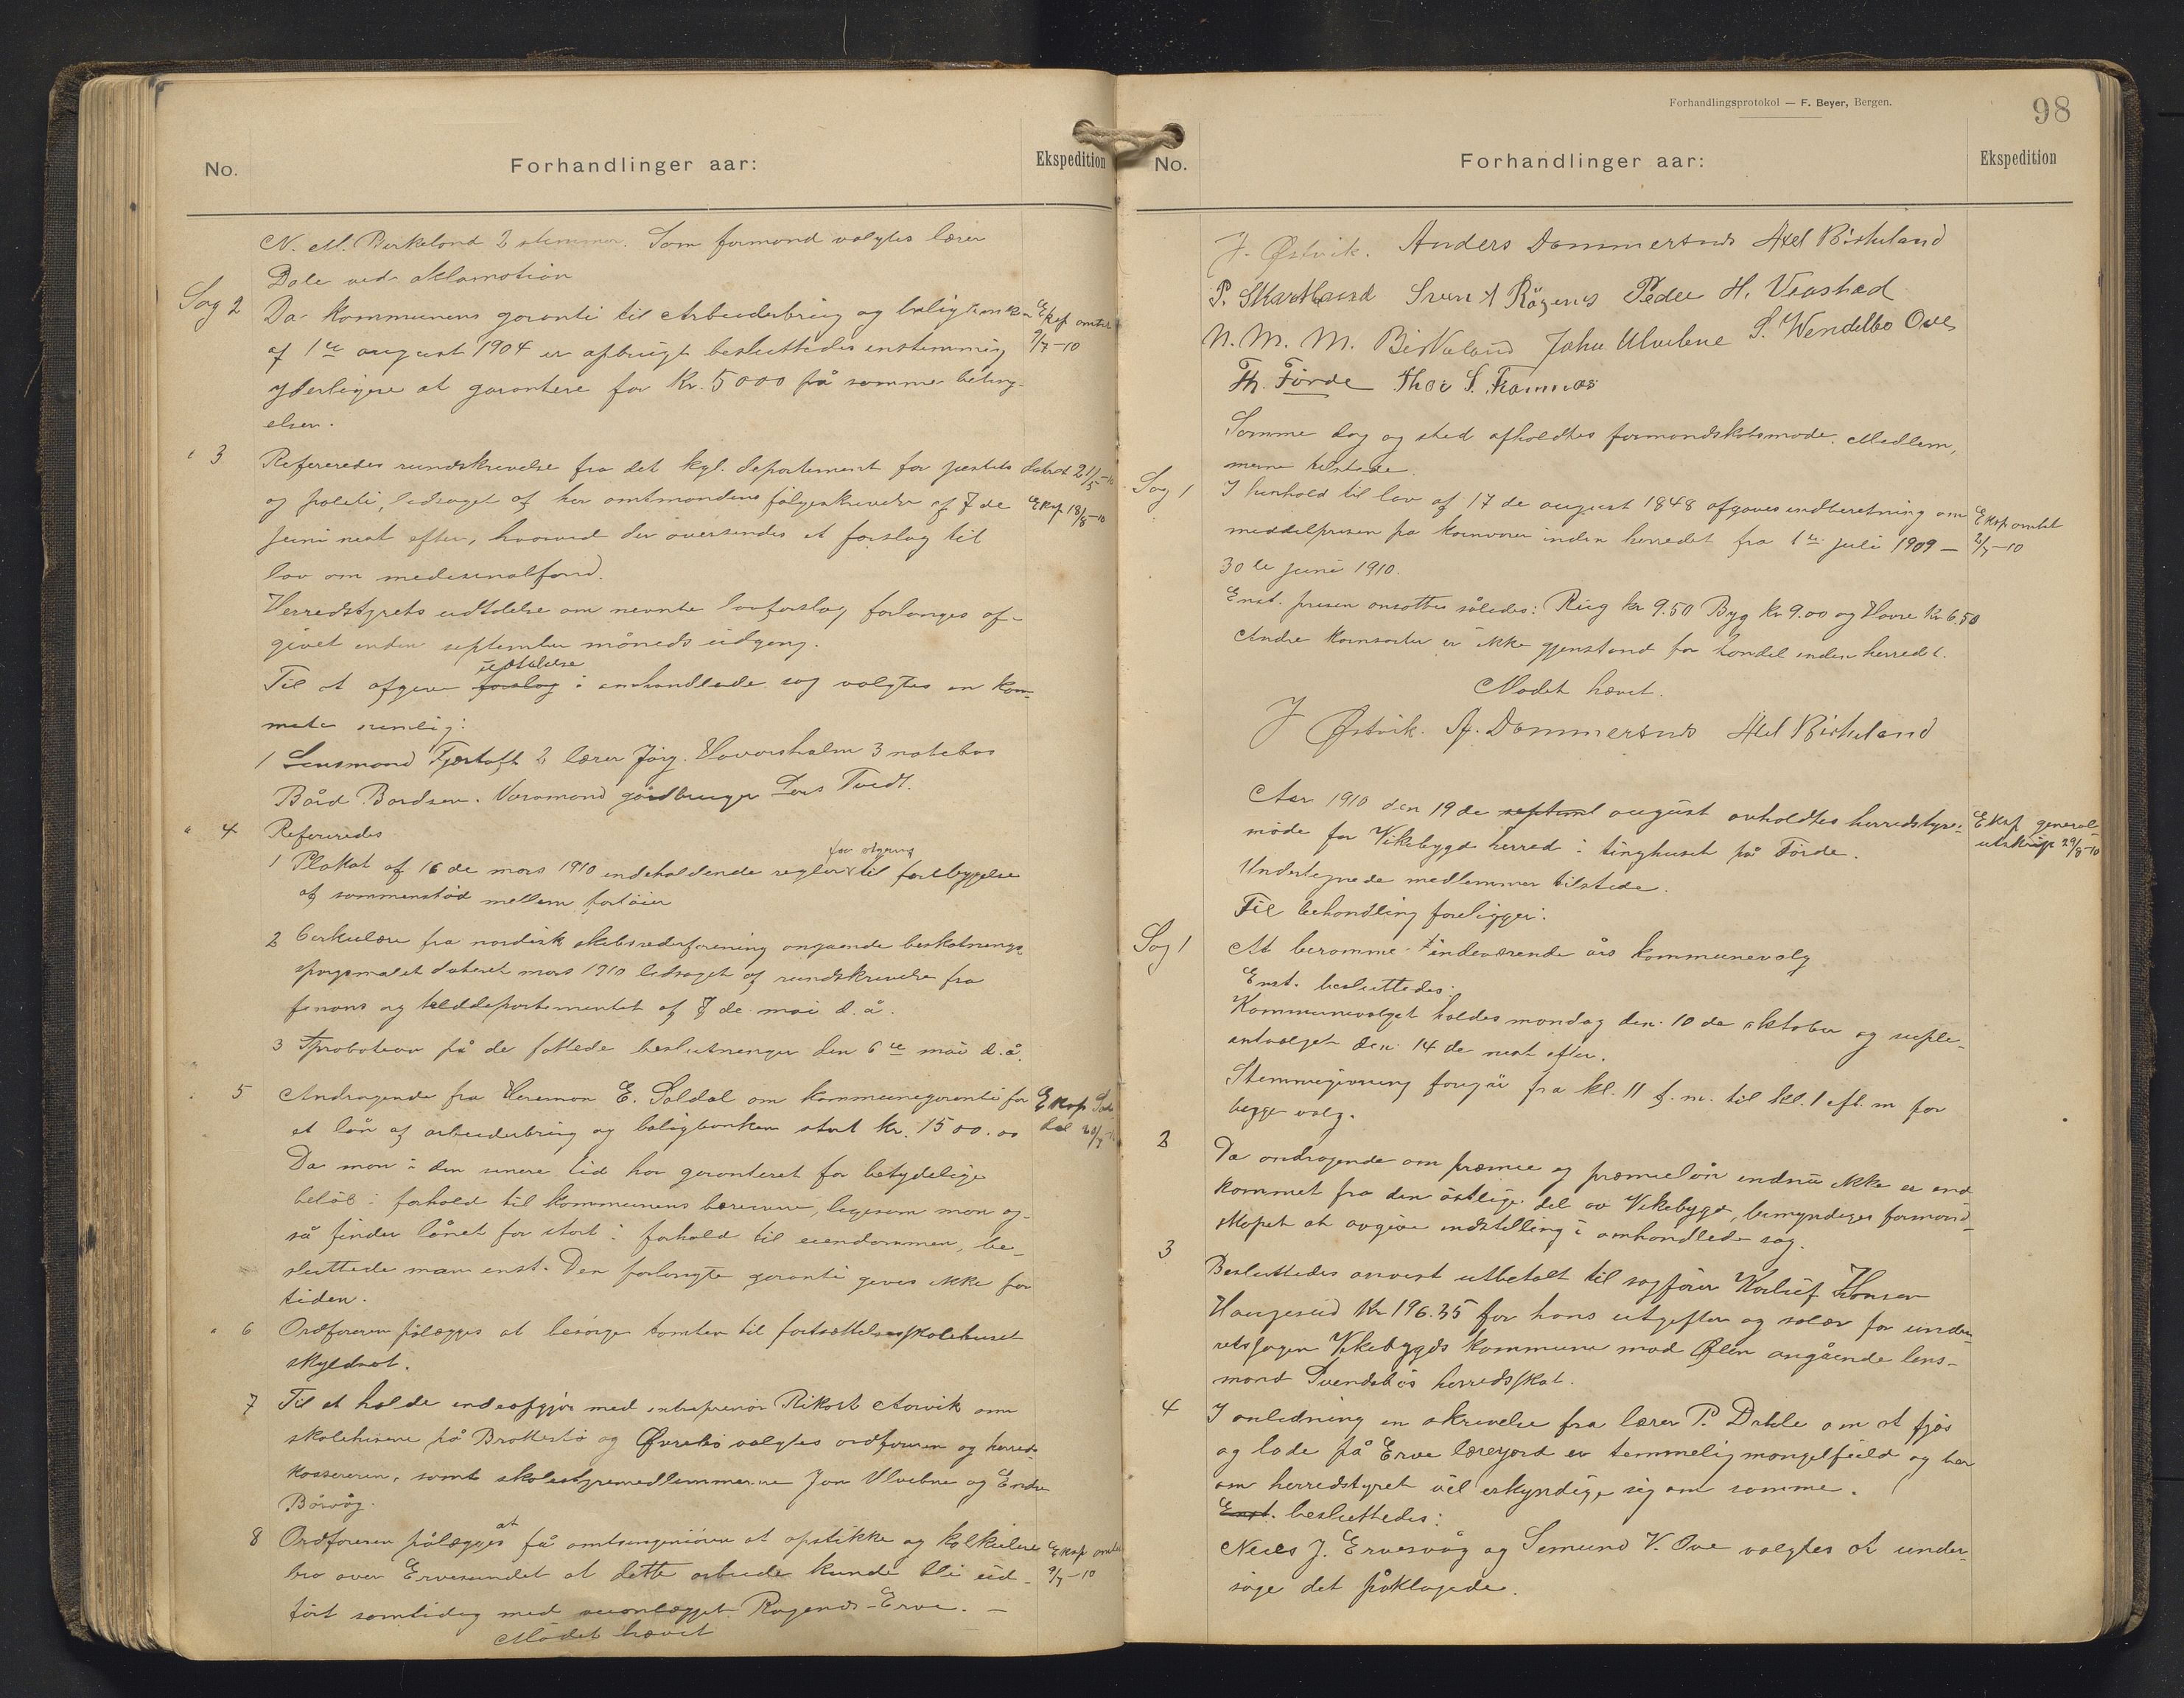 No.
Forhandlinger aar:
Ekspedition
N. M. Birkeland 2 stemmer. Som formand valgtes lærer
Dale ved aklamation
Sag 2
Da kommunens garanti til Arbeiderbrug og boligbanken
Eksp amtet
af 1ste august 1904 er opbrugt besluttedes enstemmig
9/7-10
yderligere at garantere for Kr. 5000 på samme beting-
elser.
" 3
Refereredes rundskrivelse fra det kgl. departement for justits
datert 21/5-10
og politi, ledsaget af hr amtmandens følgeskrivelse af 7de
Eksp 18/8-10
juni næst efter, hvorved der oversendes et forslag til
lov om medisinalfond.
Herredstyrets udtalelse om nevnte lovforslag forlanges af-
givet inden september måneds udgang.
udtalelse
Til at afgive forslag i omhandlede sag valgtes en kom-
mite nemlig:
1 Lensmand Fjærtoft 2 lærer Jörg. Havorsholm 3 notebas
Bård Bårdsen. Varamand gårdbruger Lars Tvedt.
" 4
Refereredes
for utgang
1 Plakat af 16 de mars 1910 indeholdende regler til forebyggelse
af sammenstöd mellem fartöier
2 Cirkulære fra nordisk skibsrederforening angaaende beskatnings-
spörgsmålet dateret mars 1910 ledsaget af rundskrivelse fra
finans og tolddepartementet af 7 de mai d. å.
3 Aprobation på de fattede beslutninger den 6te mai d. å.
" 5
Andragende fra Hereman E. Saldal om kommunegaranti for
Eksp Sal-
et lån af arbeiderbrug og boligbanken stort kr. 1500.00
dal 20/7-10
Da man i den senere tid har garanteret for betydelige
belöb i forhold til kommunens bæreevne, ligesom man og-
så finder lånet for stort i forhold til eiendommen, be-
sluttede man enst. Den forlangte garanti gives ikke for
tiden.
" 6
Ordføreren pålægges at besörge tomten til fortsættelsesskolehuset
skyldsat.
7
Til at holde endeopgjör med entreprenör Rikart Aarvik om
skolehusene på Brattestö og Øvrebö valgtes ordføreren og herreds-
kassereren, samt skolestyremedlemmerne Jon Ulvebne og Endre
Börvåg.
at
8
Ordføreren pålægges få amtsingeniören at opstikke og kalkulere
Eksp amtet
bro over Ervesundet at dette arbeide kunde bli ud-
9/7-10
fört samtidig med veianlægget Ragends-Erve. —
Mödet hævet
Forhandlingsprotokol — F. Beyer, Bergen.
98
No.
Forhandlinger aar:
Ekspedition
J. Østvik. Anders Dommersnes Axel Birkeland
P. Skartland Svein A Rögenes Peder H. Vrastad
N. M. M. Birkeland John Ulvebne S. Wendelbo Ove
Th. Förde Thor S. Framnæs
Samme dag og sted afholdtes formandskabsmøde. Medlem-
merne tilstede.
Sag 1
I henhold til lov af 17 de august 1848 afgaves indberetning om
Eksp amtet
middelprisen på kornvarer inden herredet fra 1ste juli 1909 —
2/7-10
30 te juni 1910.
Enst. prisen ansattes således: Rug kr 9.50 Byg kr 9.00 og Havre Kr 6,50
Andre kornsorter er ikke gjenstand for handel inden herredet.
Mødet hævet.
J Østvik. A. Dommersnes Axel Birkeland
Aar 1910 den 19 de septemt august avholdtes herredstyre-
Eksp general-
møde for Vikebygd herred i tinghuset på Förde.
utskrift 29/8-10
Undertegnede medlemmer tilstede.
Til behandling foreligger:
Sag 1
At beramme indeværende års kommunevalg
Enst. besluttedes:
Kommunevalget holdes mandag den 10 de oktober og suple-
antvalget den 14 de næst efter.
Stemmegivning foregår fra kl. 11 f. m. til kl. 1 eft. m for
begge valg.
2
Da andragende om præmie og præmielån endnu ikke er ind-
kommet fra den östlige del av Vikebygd, bemyndiges formand-
skapet at avgive indstilling i omhandlede sag.
3
Besluttedes anvist utbetalt til sagförer Korluf Hansen
Haugesund Kr 196.35 for hans utgifter og salær for under-
retssagen Vikebygds kommune mod Ølen angående lens-
mand Svendsbös herredsskat.
4
I anledning en skrivelse fra lærer P. Dahle om at fjös
og lade på Erve lærerjord er temmelig mangelfuld og ber
om herredstyret vil erkyndige sig om samme.
Enst. besluttedes:
Neels J. Ervesvåg og Semund V. Ove valgtes at under-
söge det påklagede.